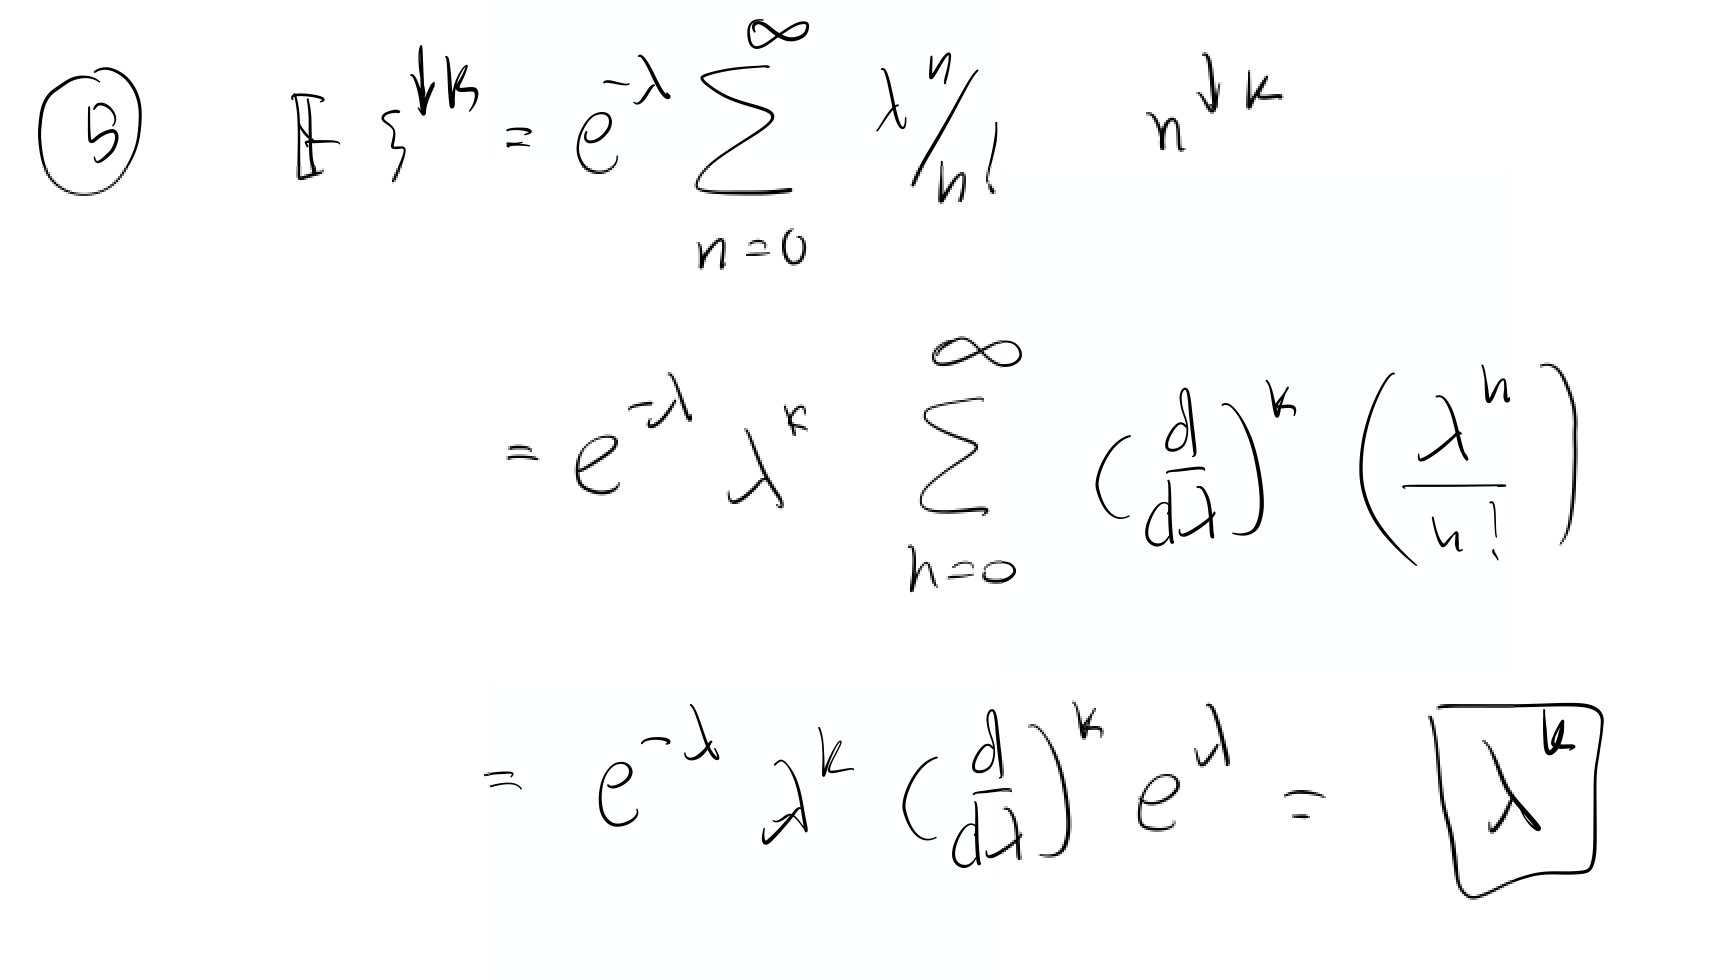 ⑤ 𝔼 ξ^{↓k} = e^{-λ} ∑_{n=0}^{∞} λ^n/n! n^{↓k}
= e^{-λ} λ^k ∑_{n=0}^{∞} (d/dλ)^k (λ^n/n!)
= e^{-λ} λ^k (d/dλ)^k e^λ = λ^k